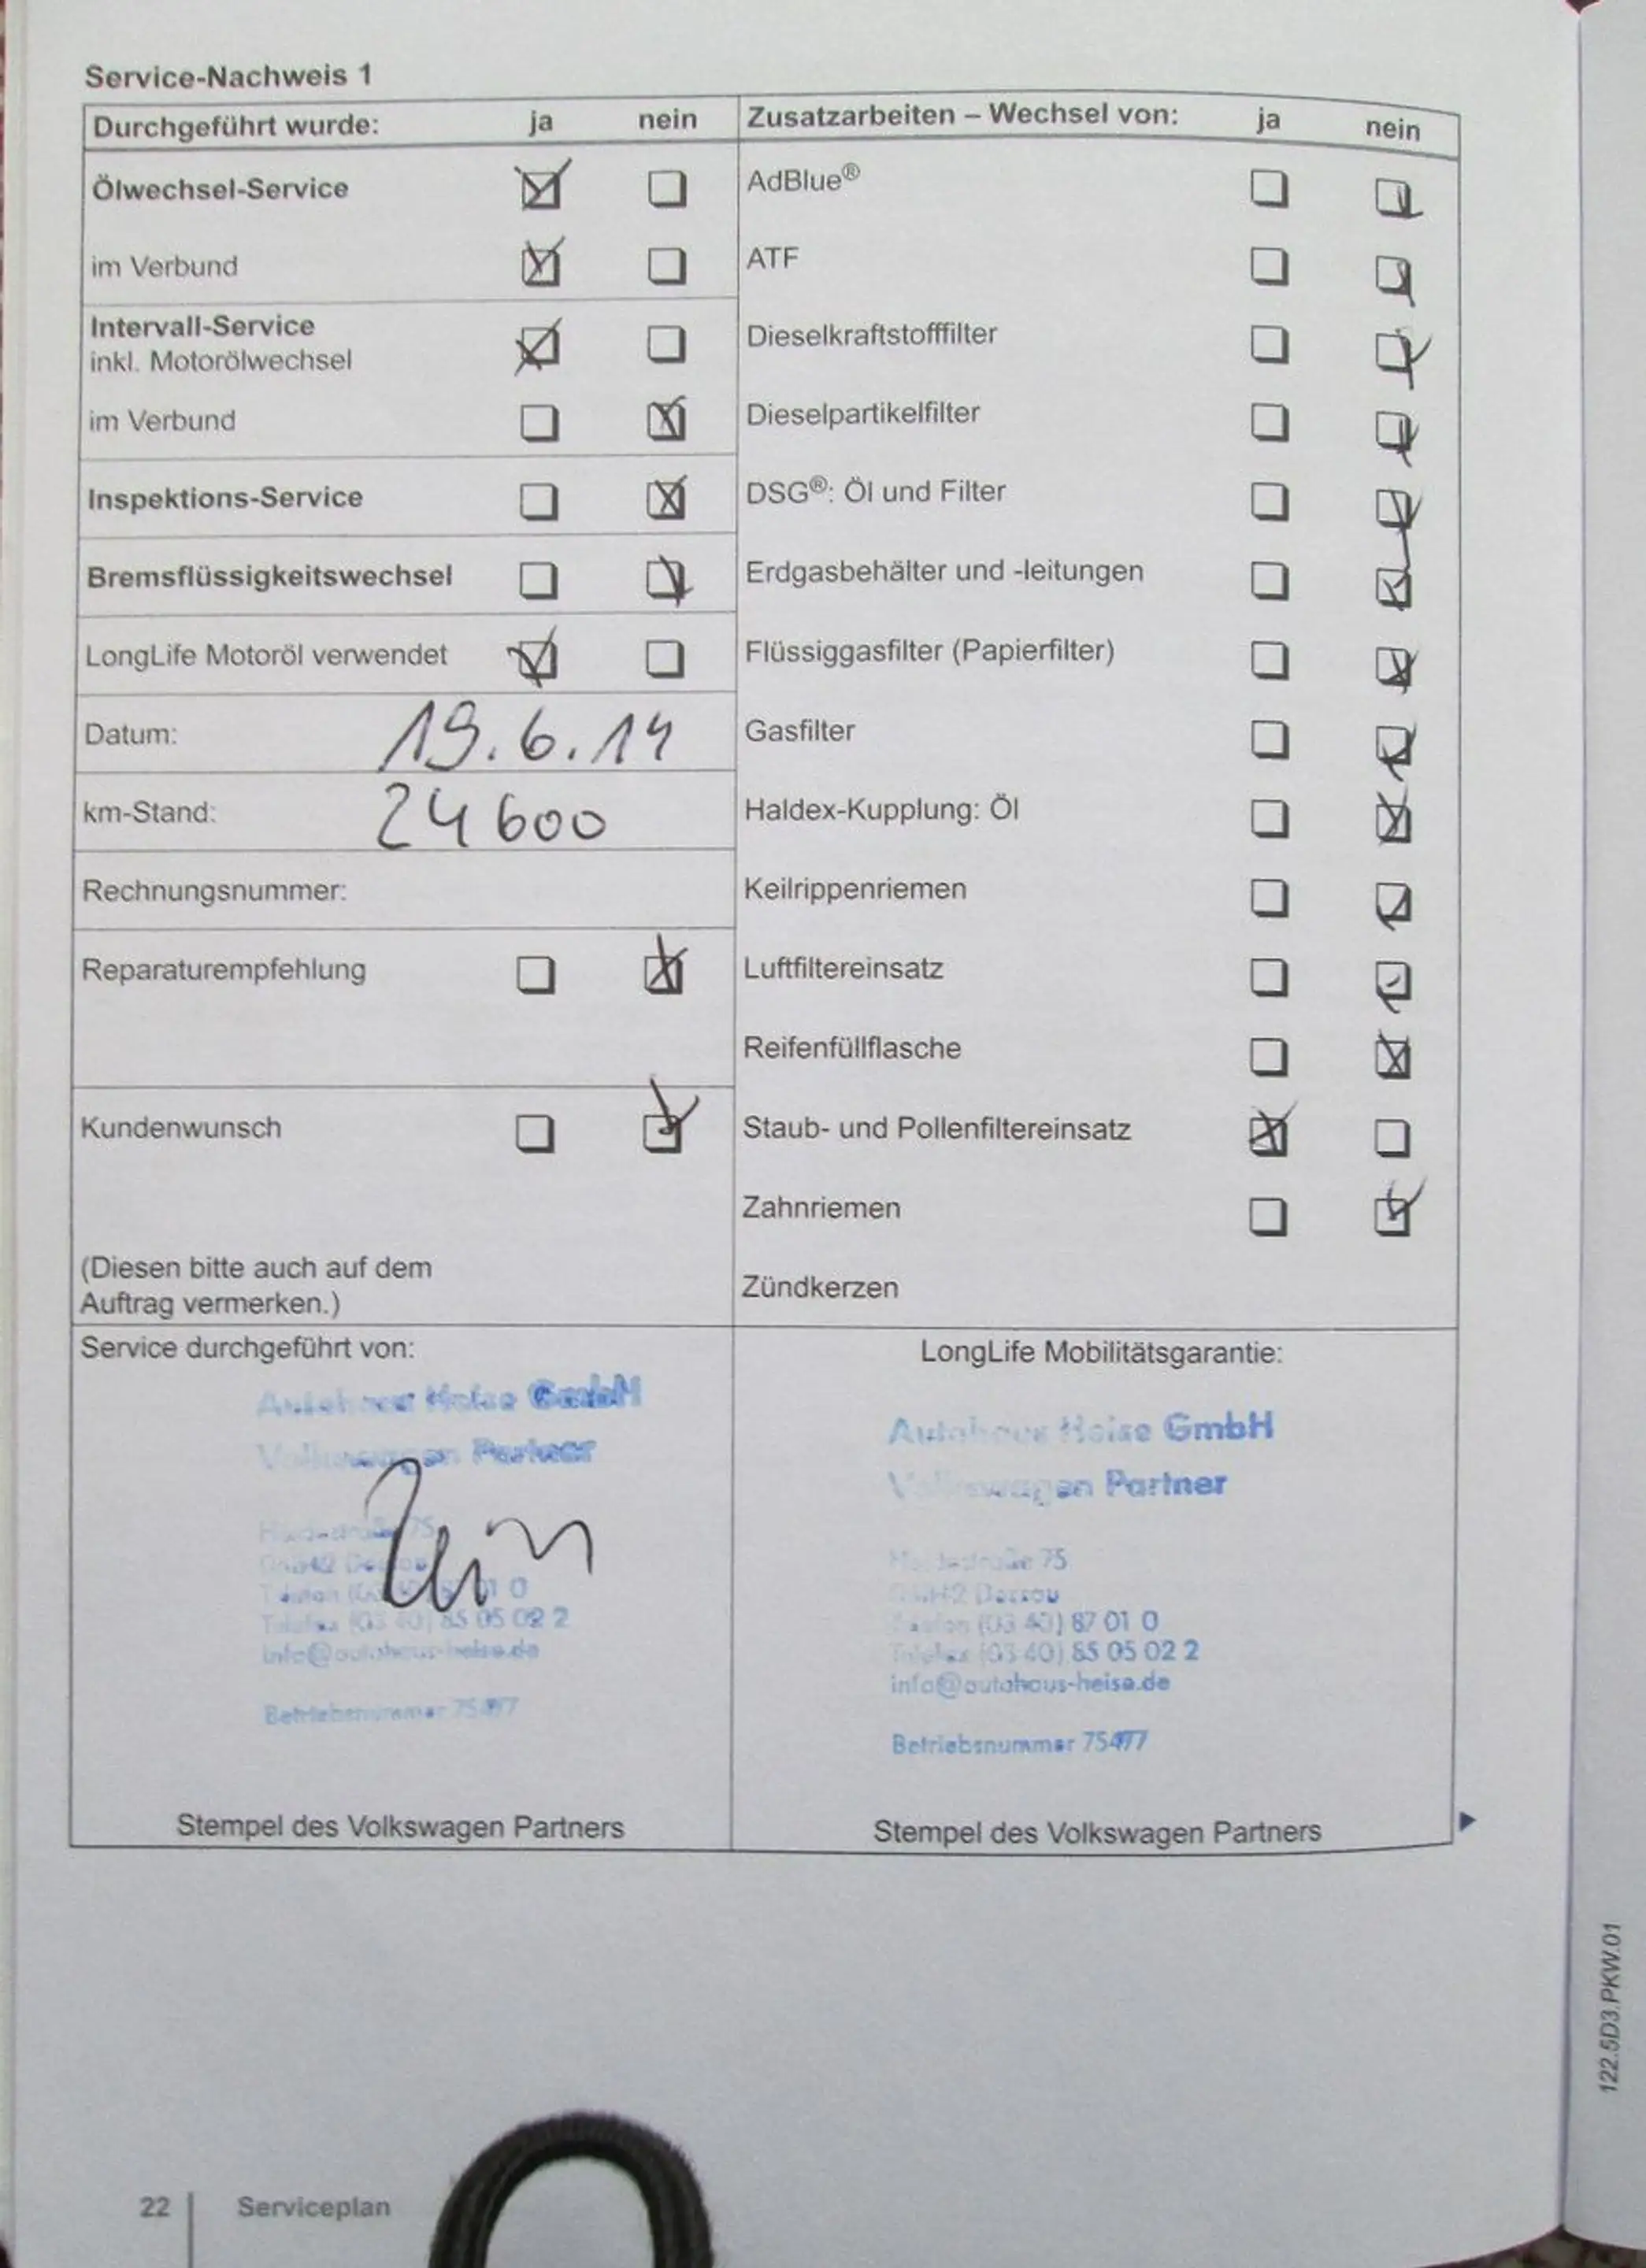 Service-Nachweis 1
Durchgeführt wurde: ja nein
Ölwechsel-Service
im Verbund
Intervall-Service
inkl. Motorölwechsel
im Verbund
Inspektions-Service
Bremsflüssigkeitswechsel
LongLife Motoröl verwendet
Datum: 19.6.14
km-Stand: 24 600
Rechnungsnummer:
Reparaturempfehlung
Kundenwunsch
(Diesen bitte auch auf dem
Auftrag vermerken.)
Zusatzarbeiten – Wechsel von: ja nein
AdBlue®
ATF
Dieselkraftstofffilter
Dieselpartikelfilter
DSG®: Öl und Filter
Erdgasbehälter und -leitungen
Flüssiggasfilter (Papierfilter)
Gasfilter
Haldex-Kupplung: Öl
Keilrippenriemen
Luftfiltereinsatz
Reifenfüllflasche
Staub- und Pollenfiltereinsatz
Zahnriemen
Zündkerzen
Service durchgeführt von:
Autohaus Heise GmbH
Volkswagen Partner
75
Dessau
Telefon 01 0
Telefax (03 40) 85 05 02 2
info@autohaus-heise.de
Betriebsnummer
Stempel des Volkswagen Partners
LongLife Mobilitätsgarantie:
Autohaus Heise GmbH
Volkswagen Partner
75
Dessau
Telefon (03 40) 87 01 0
Telefax (03 40) 85 05 02 2
info@autohaus-heise.de
Betriebsnummer
Stempel des Volkswagen Partners
122.5D3.PKW.01
22 Serviceplan